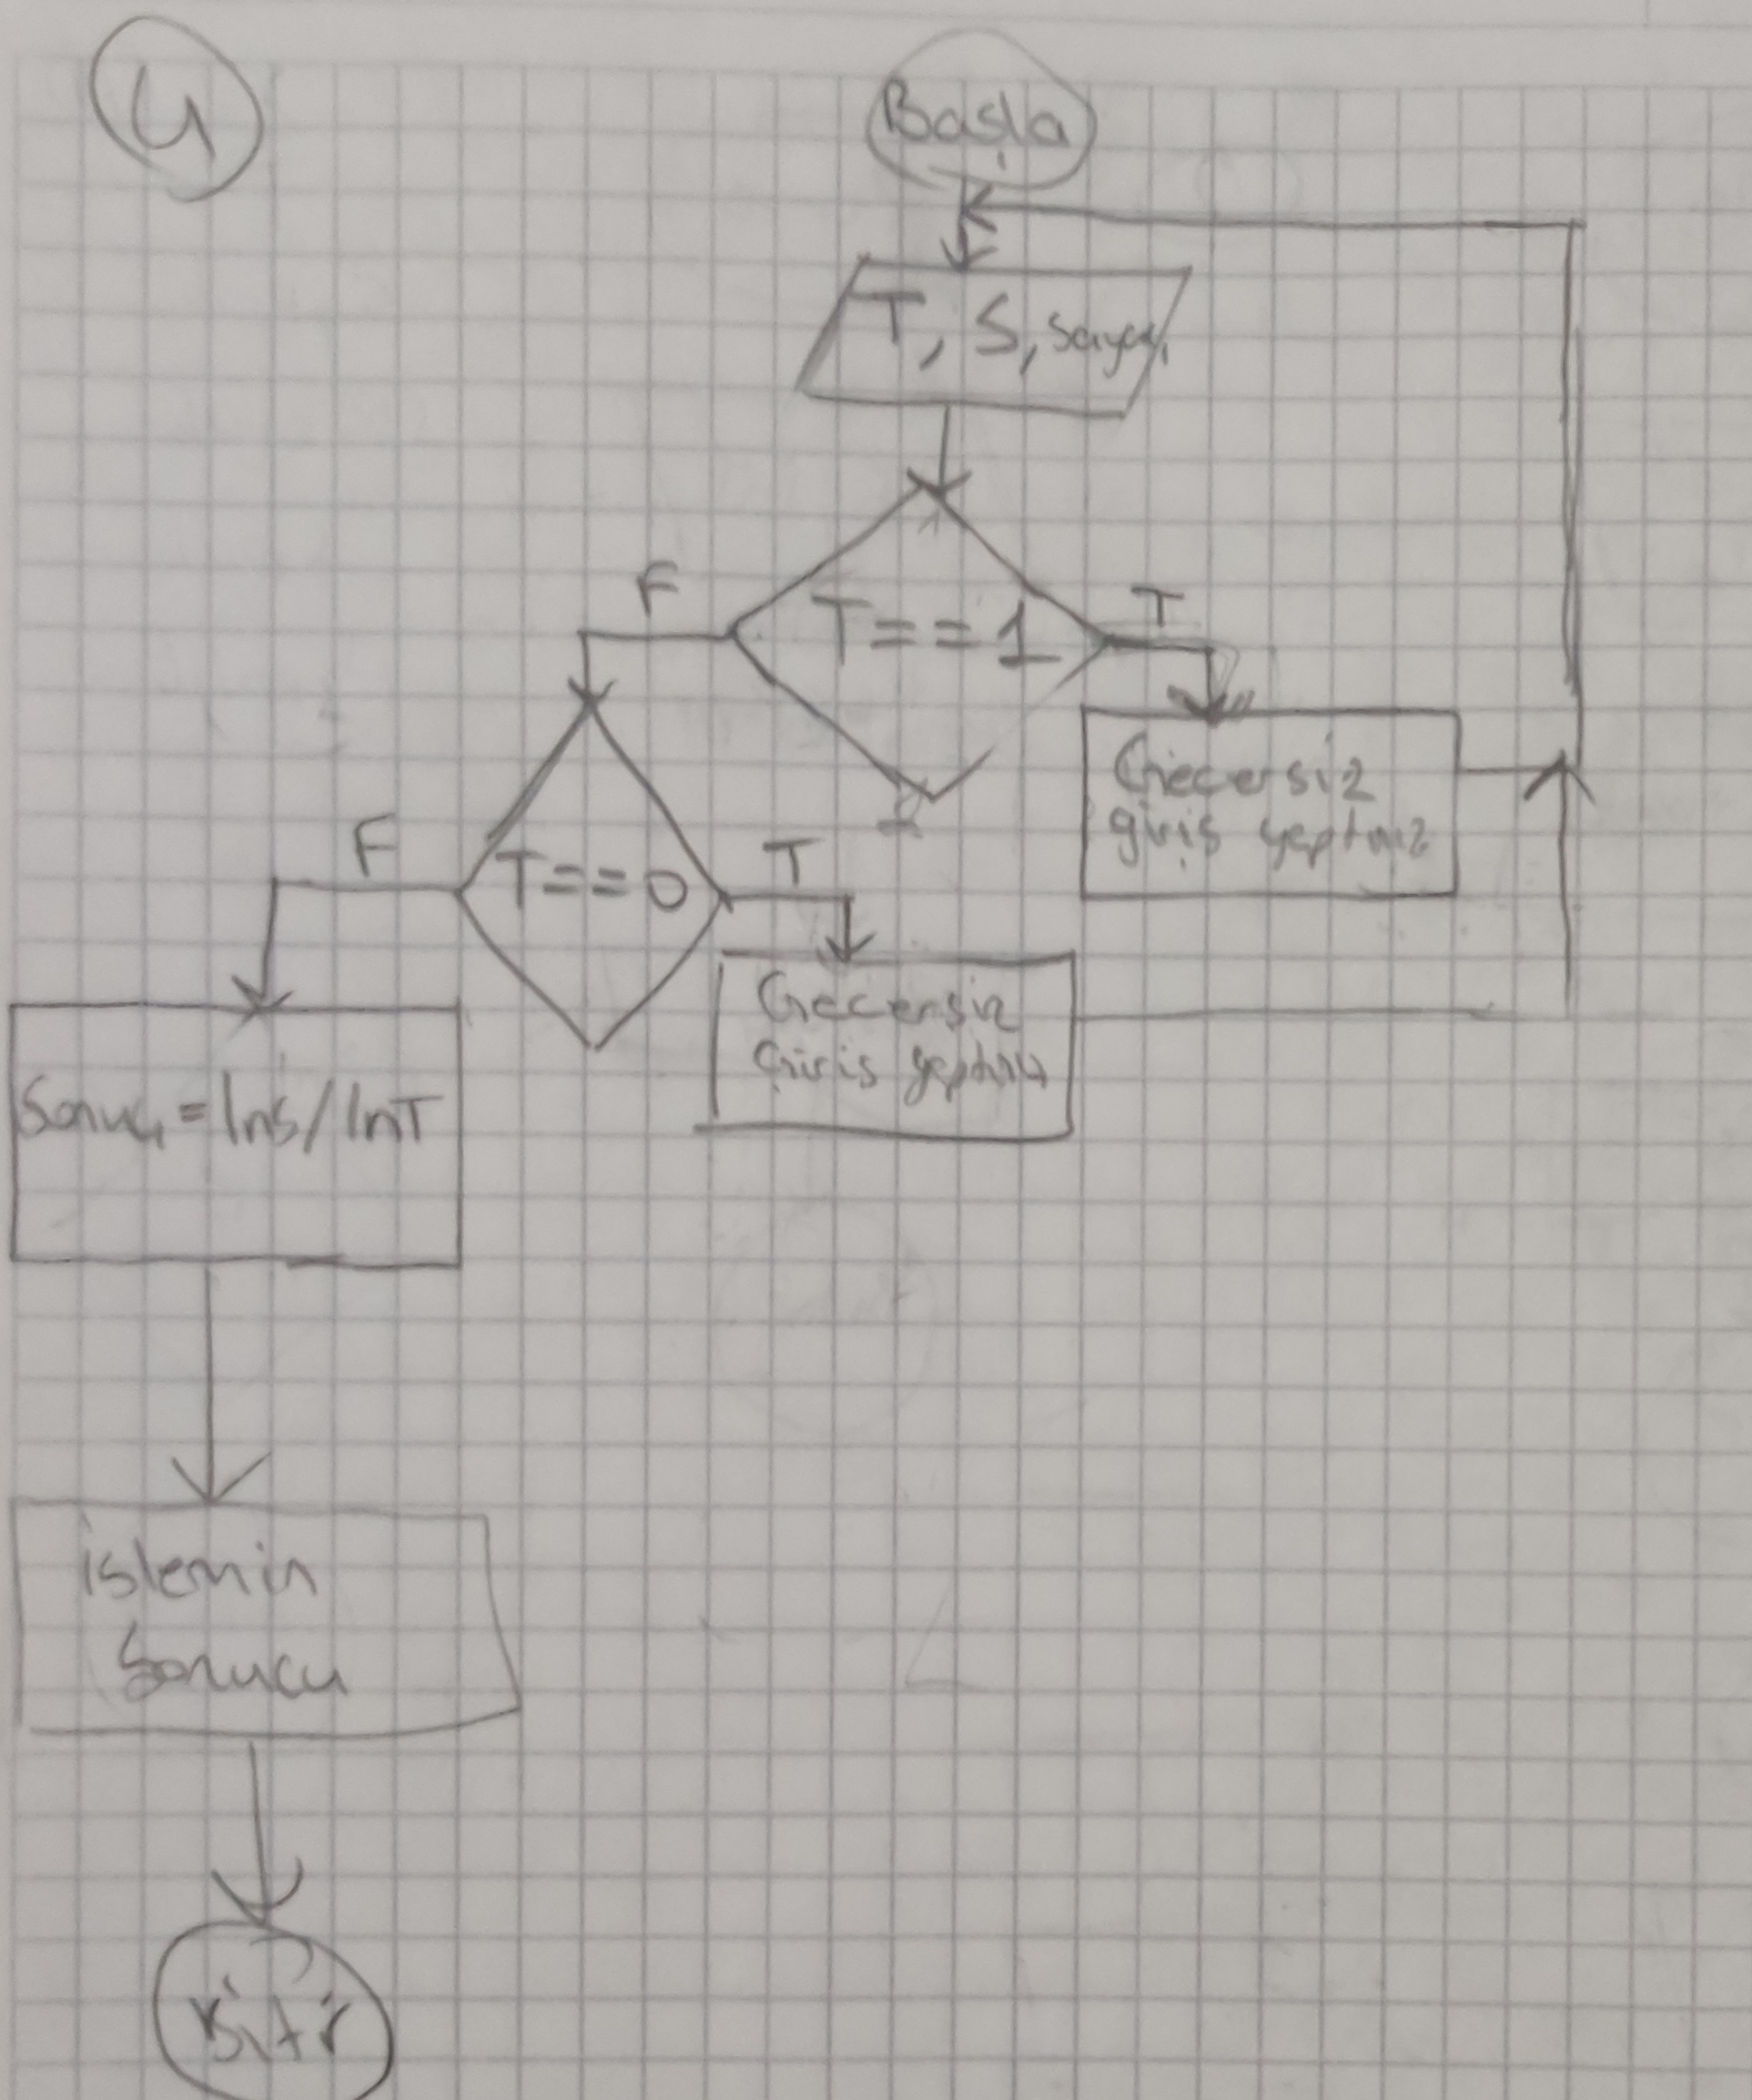 4
Başla
T, S, Sonuç
T==1
F
T
Gecersiz
giriş yaptınız
T==0
F
T
Gecersiz
Giris yaptınız
Sonuç = lns/lnT
islemin
Sonucu
Bitir